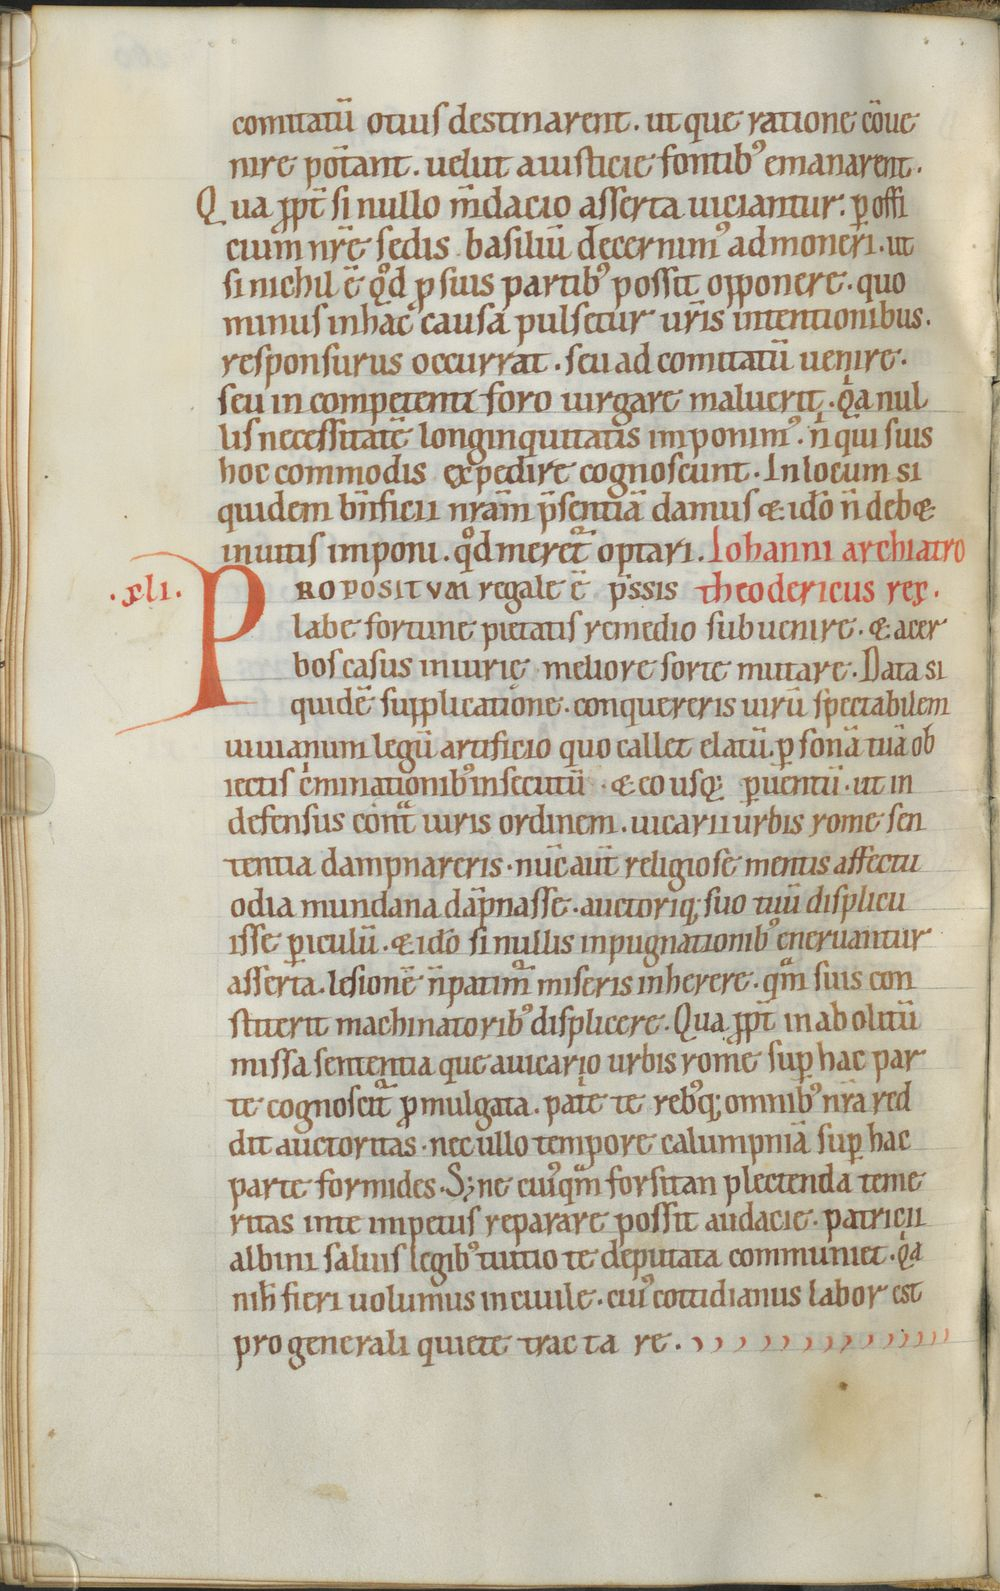 comitatū otius destinarent. ut que ratione cōue
nire pot̄ant. uelut a iusticie fontib᾽ emanarent.
Qua ꝓpt̄ si nullo m̄dacio asserta uiciantur. ꝑ offi
cium nr̄ę sedis basiliū decernim᾽ admoneri. ut
si nichil ē qͦd ꝓ suis partib᾽ possit opponere. quo
minus in hac causa pulsetur ur̄is intentionibus.
responsurus occurrat. seu ad comitatū uenire.
seu in competenti foro iurgare maluerit. qͥa nul
lis necessitatē longinquitatis imponim᾽. n̄ qͥ suis
hoc commodis expedire cognoscunt. In locum si
quidem bn̄ficii nr̄am p̄sentiā damus & id̄o n̄ deb&
inuitis imponi. qͦd meret᷑ optari. Iohanni archiatro
.xli. PROPOSITVM regale ē p̄ssis theodericus rex.
labe fortune pietatis remedio subuenire. & acer
bos casus iniurię meliore sorte mutare. Data si
quidē supplicatione. conquereris uirū spectabilem
uiuianum legū artificio quo callet elatū. ꝑsonā tuā ob
iectis c̄minationib᾽ insecutū. & eo usq; ꝑuentū. ut in
defensus cont̄ᵃ iuris ordinem. uicarii urbis rome sen
tentia dampnareris. nūc aut̄ religiose mentis affectu
odia mundana dāpnasse. auctoriq; suo tuū displicu
isse ꝑiculū. & id̄o si nullis inpugnationib᾽ eneruantur
asserta. lesionē n̄ patim᷑ miseris inherere. qͣm suis con
stiterit machinatorib᾽ displicere. Qua ꝓpt̄ in abolitū
missa sententia que a uicario urbis rome suꝑ hac par
te cognoscit᷑ ꝓmulgata. pat̄e te reb᾽q; omnib᾽ nr̄a red
dit auctoritas. nec ullo tempore calumpniā suꝑ hac
parte formides. S; ne cui᾽qͣm forsitan plectenda teme
ritas in te impetus reparare possit audacie. patricii
albini saluis legib᾽ tuitio te deputata communiet. qͥa
nih̄ fieri uolumus inciuile. cui᾽ cottidianus labor est
pro generali quiete tractare.